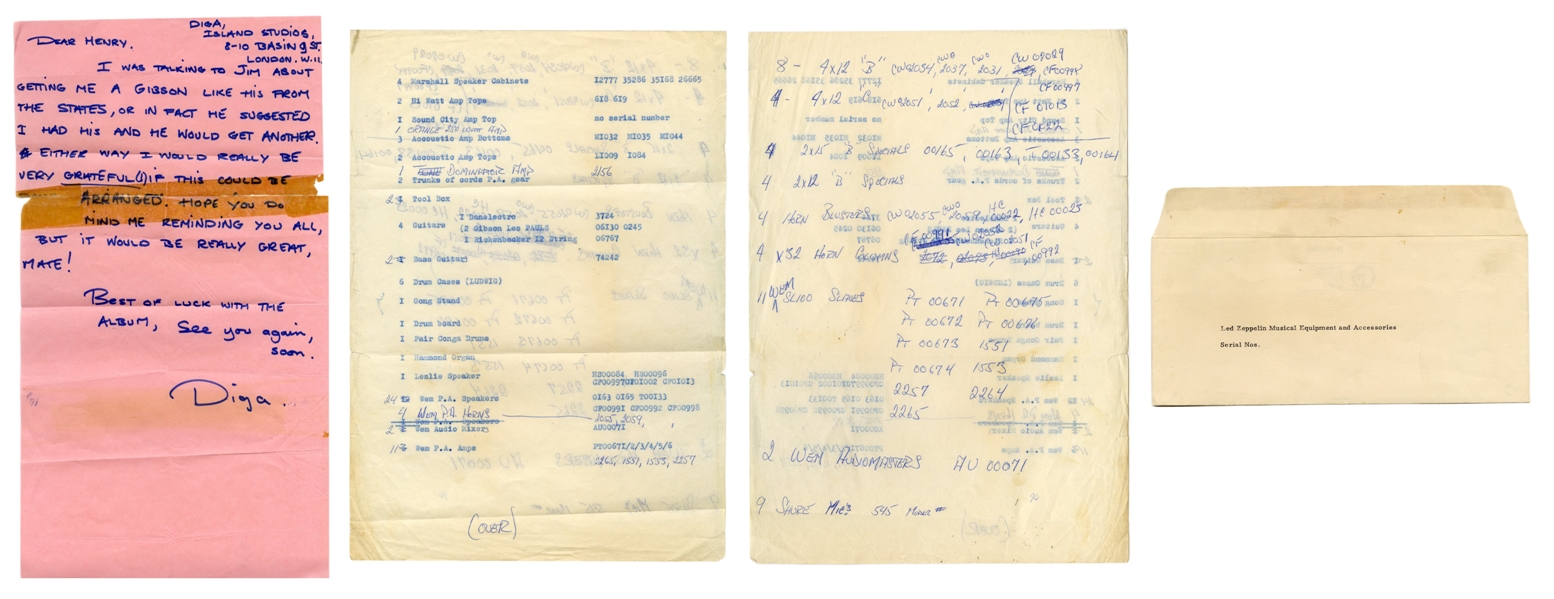 DIGA,
ISLAND STUDIOS,
8-10 BASING ST.
LONDON. W.11.
DEAR HENRY.
I WAS TALKING TO JIM ABOUT
GETTING ME A GIBSON LIKE HIS FROM
THE STATES, OR IN FACT HE SUGGESTED
I HAD HIS AND HE WOULD GET ANOTHER.
EITHER WAY I WOULD REALLY BE
VERY GRATEFUL(!) IF THIS COULD BE
ARRANGED. HOPE YOU DO
MIND ME REMINDING YOU ALL,
BUT IT WOULD BE REALLY GREAT,
MATE!
BEST OF LUCK WITH THE
ALBUM, See you again,
soon.
Diga.
4 Marshall Speaker Cabinets I2777 35286 35I68 26665
2 Hi Watt Amp Tops 6I8 6I9
I Sound City Amp Top no serial number
1 ORANGE 200 WATT AMP
3 Accoustic Amp Bottoms MI032 MI035 MI044
2 Accoustic Amp Tops LI009 I084
1 DOMINATOR AMP 2156
2 Trunks of cords P.A. gear
2 Tool Box
I Danelectro 3724
4 Guitars (2 Gibson Les PAULS 06I30 0245
I Richenbecker I2 String 06767
2 Base Guitar 74242
6 Drum Cases (LUDWIG)
I Gong Stand
I Drum board
I Pair Conga Drums
I Hammond Organ
I Leslie Speaker HS00084 HS00096
CF00997CF0I002 CF0I0I3
24 Wem P.A. Speakers 0I63 0I65 T00I33
4 WEM P.A. HORNS CF0099I CF00992 CF00998
4 Wem P.A. Speakers 2055, 2059,
2 Wem Audio Mixers AU0007I
11 Wem P.A. Amps PT0067I/2/3/4/5/6
2265, 1551, 1553, 2257
(OVER)
8 - 4x12 "B" CW02054, CWO 2037, CWO 2031, CW 02029 CF00998
CF00997
4 - 4x12 CW02051, 2052, CF 01013
CF 0122
4 2x15 "B" SPECIALS 00165, 00163, T 00133, 00164
4 2x12 "B" SPECIALS
4 HORN BOUSTERS CW02055, CWO 2059, HC 00022, HC 00023
4 x32 HORN COLUMNS CF 00992
11 WEM SL100 SLAVES PT 00671 PT 00675
PT 00672 PT 00676
PT 00673 1551
PT 00674 1553
2257 2264
2265
2 WEM AUDIOMASTERS AU 00071
9 SHURE MIC'S 545 MODEL #
Led Zeppelin Musical Equipment and Accessories
Serial Nos.